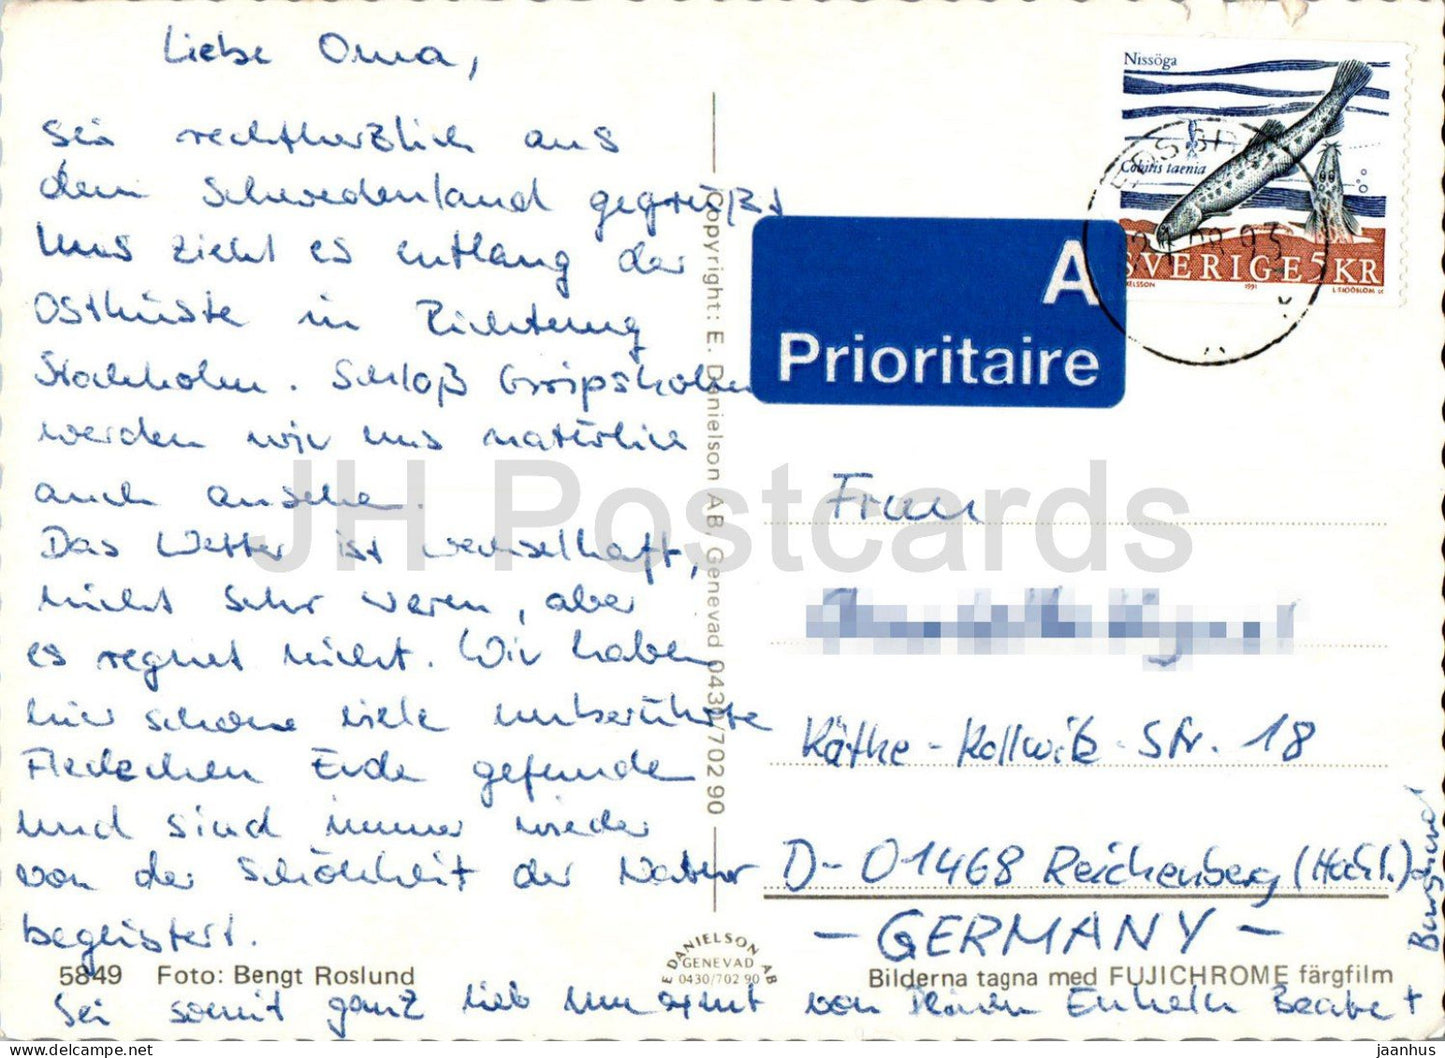 Liebe Oma,
sei rechtherzlich aus
dem Schwedenland gegrüßt
Uns zieht es entlang der
Ostküste in Richtung
Stockholm. Schloß Gripsholm
werden wir uns natürlich
auch ansehen.
Das Wetter ist wechselhaft,
nicht sehr warm, aber
es regnet nicht. Wir haben
hier schone viele unberührte
Fleckchen Erde gefunden
und sind immer wieder
von der Schönheit der Natur
begeistert.
Sei somit ganz lieb umarmt von Deinen Enkeln Beate +
Burghard
5849 Foto: Bengt Roslund
Copyright: E. Danielson AB, Genevad 0430/702 90
E DANIELSON AB
GENEVAD
0430/702 90
Nissöga
Cobitis taenia
SVERIGE 5 KR
1991
A
Prioritaire
Frau
Käthe-Kollwitz-Str. 18
D-01468 Reichenberg (Hochl.)
- GERMANY -
Bilderna tagna med FUJICHROME färgfilm
JH Postcards
jaanhus